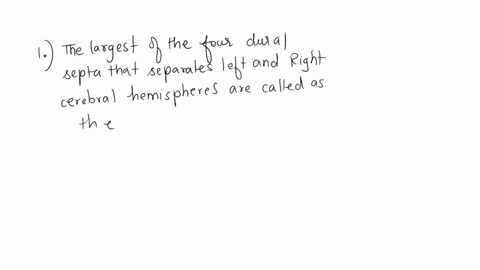 1.) The largest of the four dural
septa that separates left and Right
cerebral hemispheres are called as
the